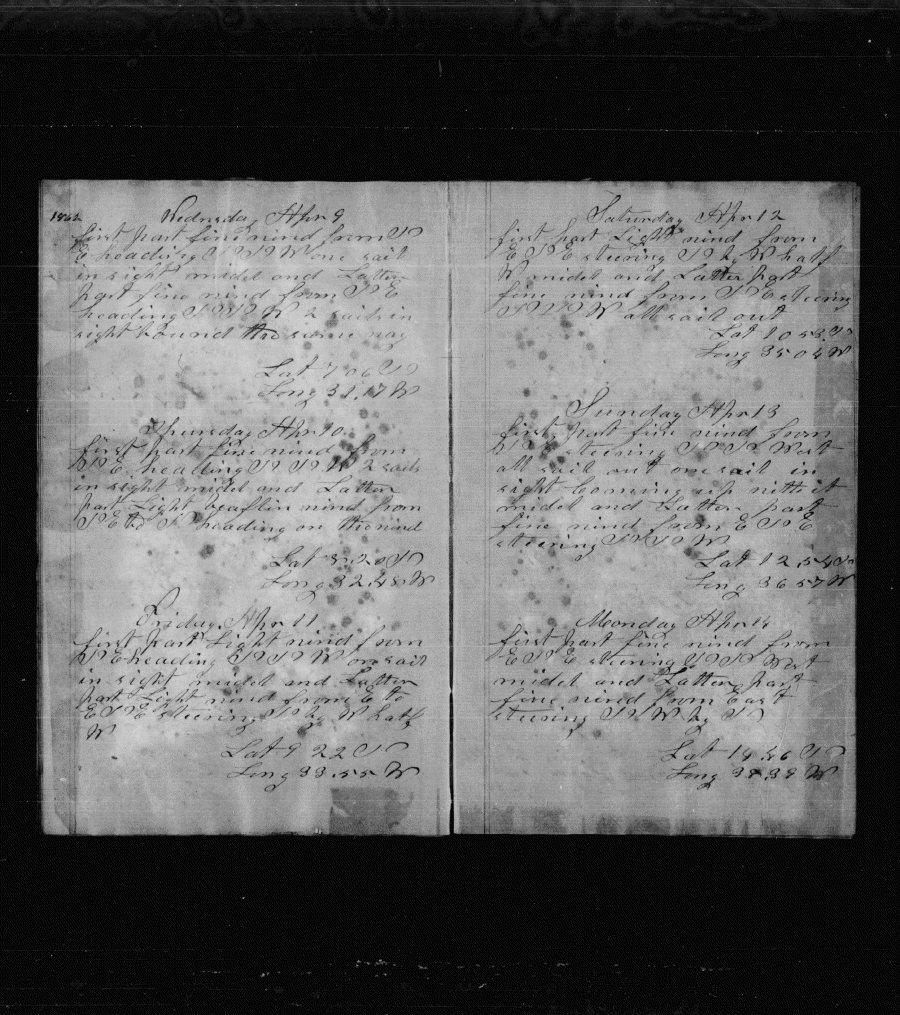 1862
Wednsday Apr 9
first part fine wind from S
E heading S S W one sail
in sight midel and Latter
part fine wind from S E
heading S S W 2 sails in
sight bound the same way
Lat 7 06 S
Long 31.17 W
Thursday Apr 10
first part fine wind from
S E heading S S W 2 sails
in sight midel and Latter
part Light wind from
S E to S heading on the wind
Lat 8.20 S
Long 32.48 W
Friday Apr 11
first part Light wind from
S E heading S S W one sail
in sight midel and Latter
part Light wind from E to
E S E steering S by W half
W
Lat 9 22 S
Long 33.55 W
Saturday Apr 12
first part Light wind from
E S E steering S by W half
W midel and Latter part
fine wind from S E steering
S S W all sail out
Lat 10 53 S
Long 35 04 W
Sunday Apr 13
first part fine wind from
S E steering S S West
all sail out one sail in
sight Coming up with it
midel and Latter part
fine wind from E S E
steering S S W
Lat 12.54 S
Long 36 57 W
Monday Apr 14
first part fine wind from
E S E steering S S West
midel and Latter part
fine wind from East
steering S W by S
Lat 14.46 S
Long 38.39 W